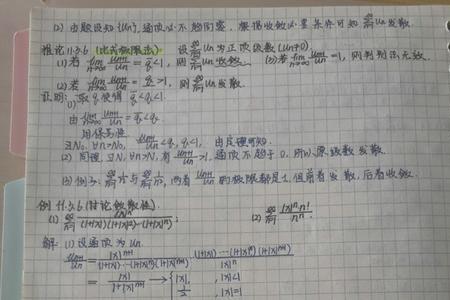 (2) 由题设知{un}递减必不趋于零,根据收敛必要条件可知 ∑un 发散.
推论11.3.6 (比式极限法) 设 ∑un 为正项级数(un≠0)
(1) 若 lim n→∞ un+1/un = q<1, 则 ∑un 收敛. (3) 若 lim n→∞ un+1/un =1, 则判别法无效.
(2) 若 lim n→∞ un+1/un = q>1, 则 ∑un 发散.
证明: (1) 取 q1 使得 q<q1<1.
由 lim n→∞ un+1/un = q<q1
用保号性
∃N0, ∀n>N0, un+1/un <q1, q1<1,
(2) 同理, ∃N, ∀n>N, 有 un+1/un >1, 通项不趋于0, 所以原级数发散
(3) 例子: ∑1/n 与 ∑1/n², 两者 un+1/un 的极限都是1, 但前者发散, 后者收敛.
例 11.3.6 (讨论敛散性)
(1) ∑ |x|^n/((1+|x|)(1+|x|²)···(1+|x|^n)); (2) ∑ |x|^n·n!/n^n
解: (1) 设通项为 un.
un+1/un = |x|^(n+1)/((1+|x|)···(1+|x|^n)(1+|x|^(n+1))) · (1+|x|)···(1+|x|^n)/|x|^n
= |x|/(1+|x|^(n+1)) → { |x|, |x|<1
1/2, |x|=1